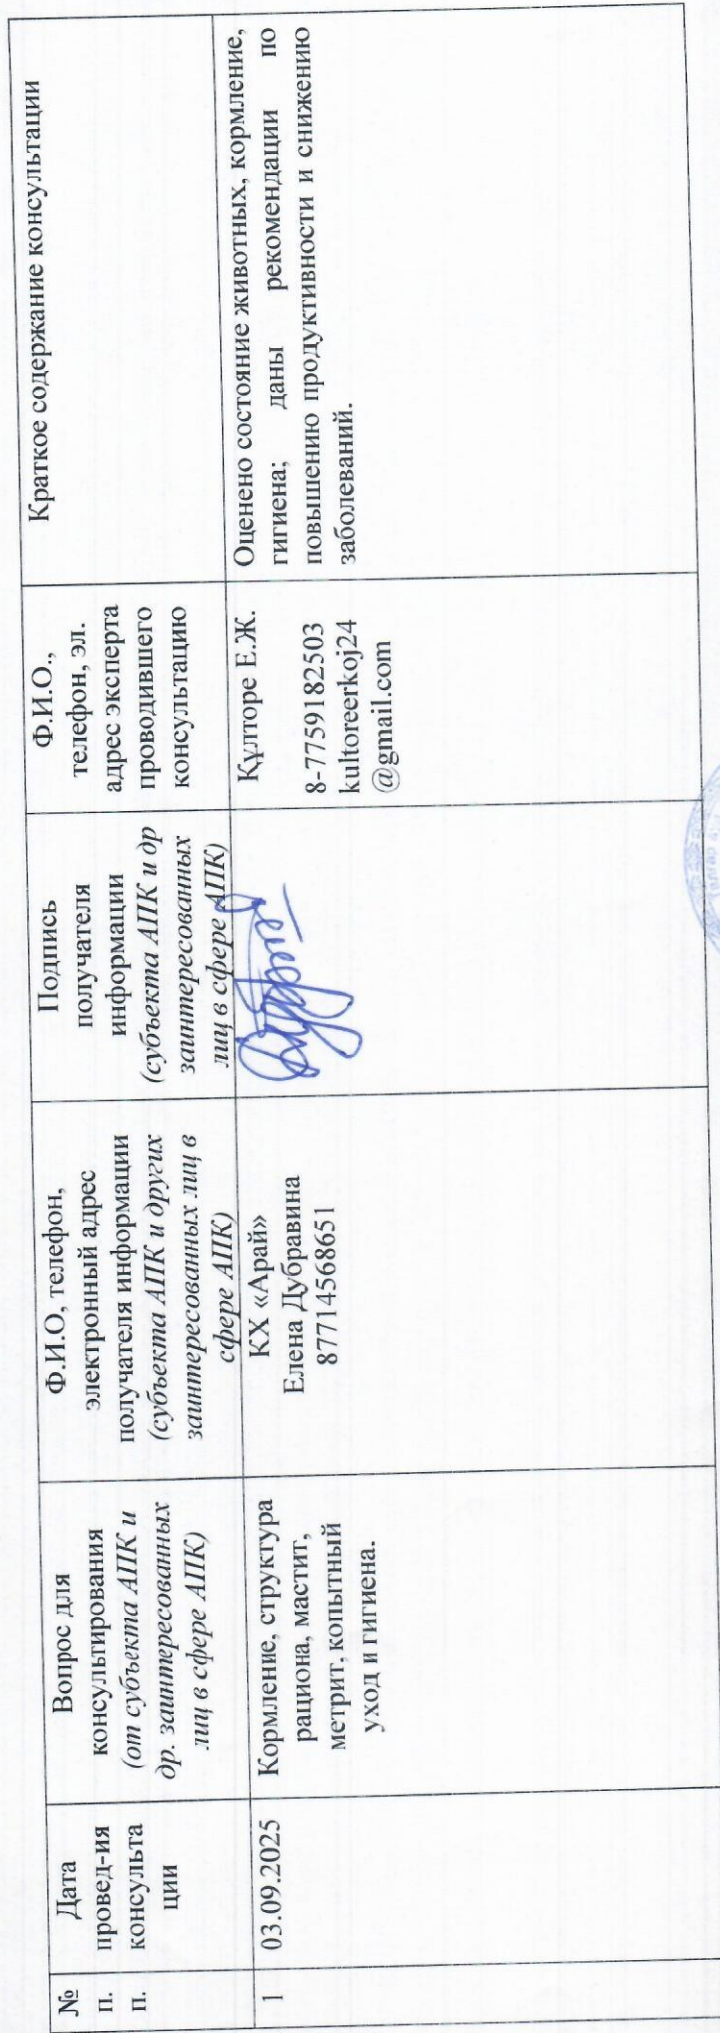 №
п.
п.
Дата
провед-ия
консульта
ции
Вопрос для
консультирования
(от субъекта АПК и
др. заинтересованных
лиц в сфере АПК)
Ф.И.О, телефон,
электронный адрес
получателя информации
(субъекта АПК и других
заинтересованных лиц в
сфере АПК)
Подпись
получателя
информации
(субъекта АПК и др
заинтересованных
лиц в сфере АПК)
Ф.И.О.,
телефон, эл.
адрес эксперта
проводившего
консультацию
Краткое содержание консультации
1
03.09.2025
Кормление, структура
рациона, мастит,
метрит, копытный
уход и гигиена.
КХ «Арай»
Елена Дубравина
87714568651
Құлторе Е.Ж.
8-7759182503
kultoreerkoj24
@gmail.com
Оценено состояние животных, кормление,
гигиена; даны рекомендации по
повышению продуктивности и снижению
заболеваний.